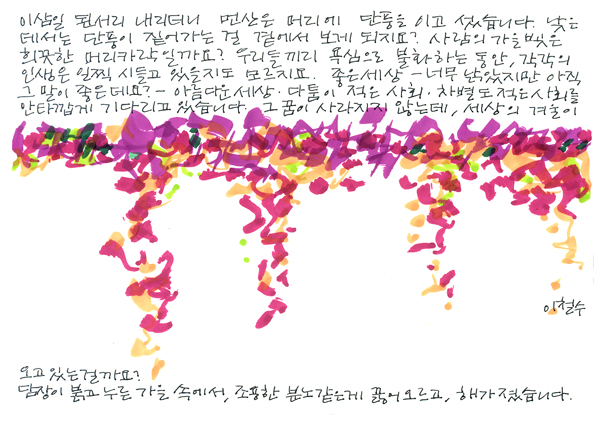 이삼일 된서리 내리더니 먼산은 머리에 단풍을 이고 섰습니다. 낮은
데서는 단풍이 짙어가는 걸 곁에서 보게 되지요? 사람의 가을빛은
희끗한 머리카락일까요? 우리들끼리 욕심으로 불화하는 동안, 각각의
인생은 일찍 시들고 있을지도 모르지요. 좋은세상 - 너무 낡았지만 아직
그 말이 좋은데요? - 아름다운세상. 다툼이 적은 사회. 차별도 적은 사회를
안타깝게 기다리고 있습니다. 그 꿈이 사라지지 않는데, 세상의 겨울이
이철수
오고 있는걸까요?
담장이 붉고 누른 가을 속에서, 조용한 분노같은게 끓어오르고, 해가 졌습니다.